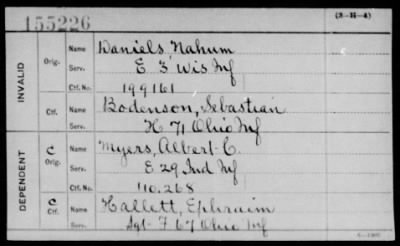 155226
(3-H-4)
INVALID
Orig. Name Daniels Nahum
Serv. E 3' Wis Inf
Ctf. No. 199161
Ctf. Name Bodenson, Sebastian
Serv. H 71 Ohio Inf
DEPENDENT
C Orig. Name Myers, Albert C.
Serv. E 29 Ind Inf
Ctf. No. 110.268
C Ctf. Name Hallett, Ephraim
Serv. Sgt- F 67 Ohio Inf